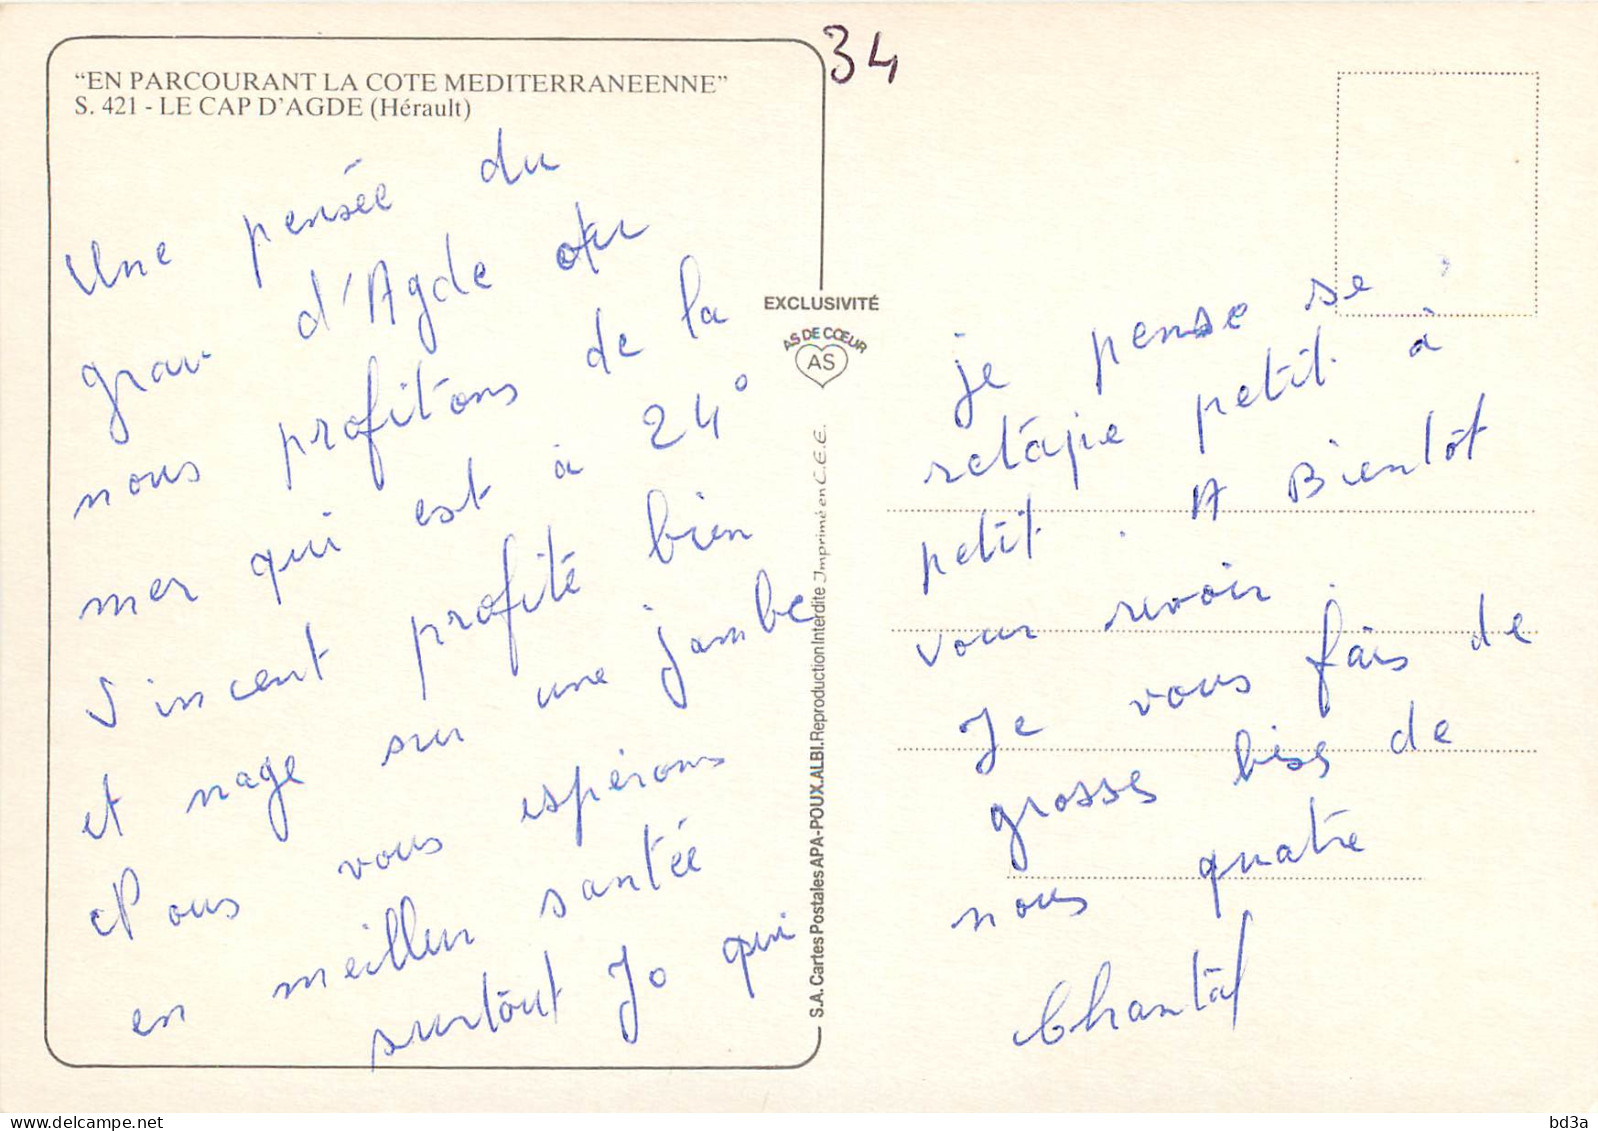 34
"EN PARCOURANT LA COTE MEDITERRANEENNE"
S. 421 - LE CAP D'AGDE (Hérault)
Une pensée du
grau d'Agde ou
nous profitons de la
mer qui est à 24°
Vincent profite bien
et nage sur une jambe
Nous vous espérons
en meilleur santée
surtout Jo qui
EXCLUSIVITÉ
AS DE CŒUR
AS
S.A. Cartes Postales APA-POUX.ALBI. Reproduction Interdite Imprimé en C.E.E.
je pense se
retapie petit à
petit. A Bientôt
vour revoir
Je vous fais de
grosses bises de
nous quatre
Chantal
bd3a